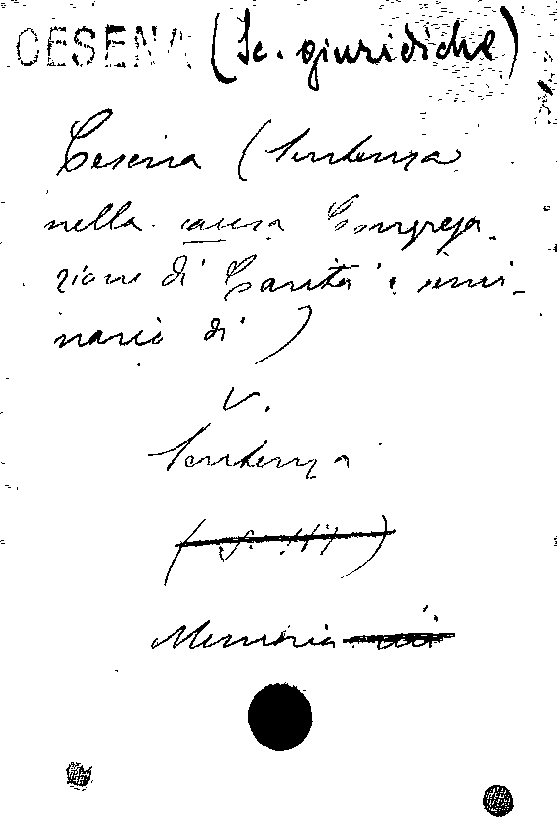 CESENA (Sc. giuridiche)
Cesena (Sentenza
nella causa Congrega-
zione di Carità e semi-
nario di)
V.
Sentenza
Memoria